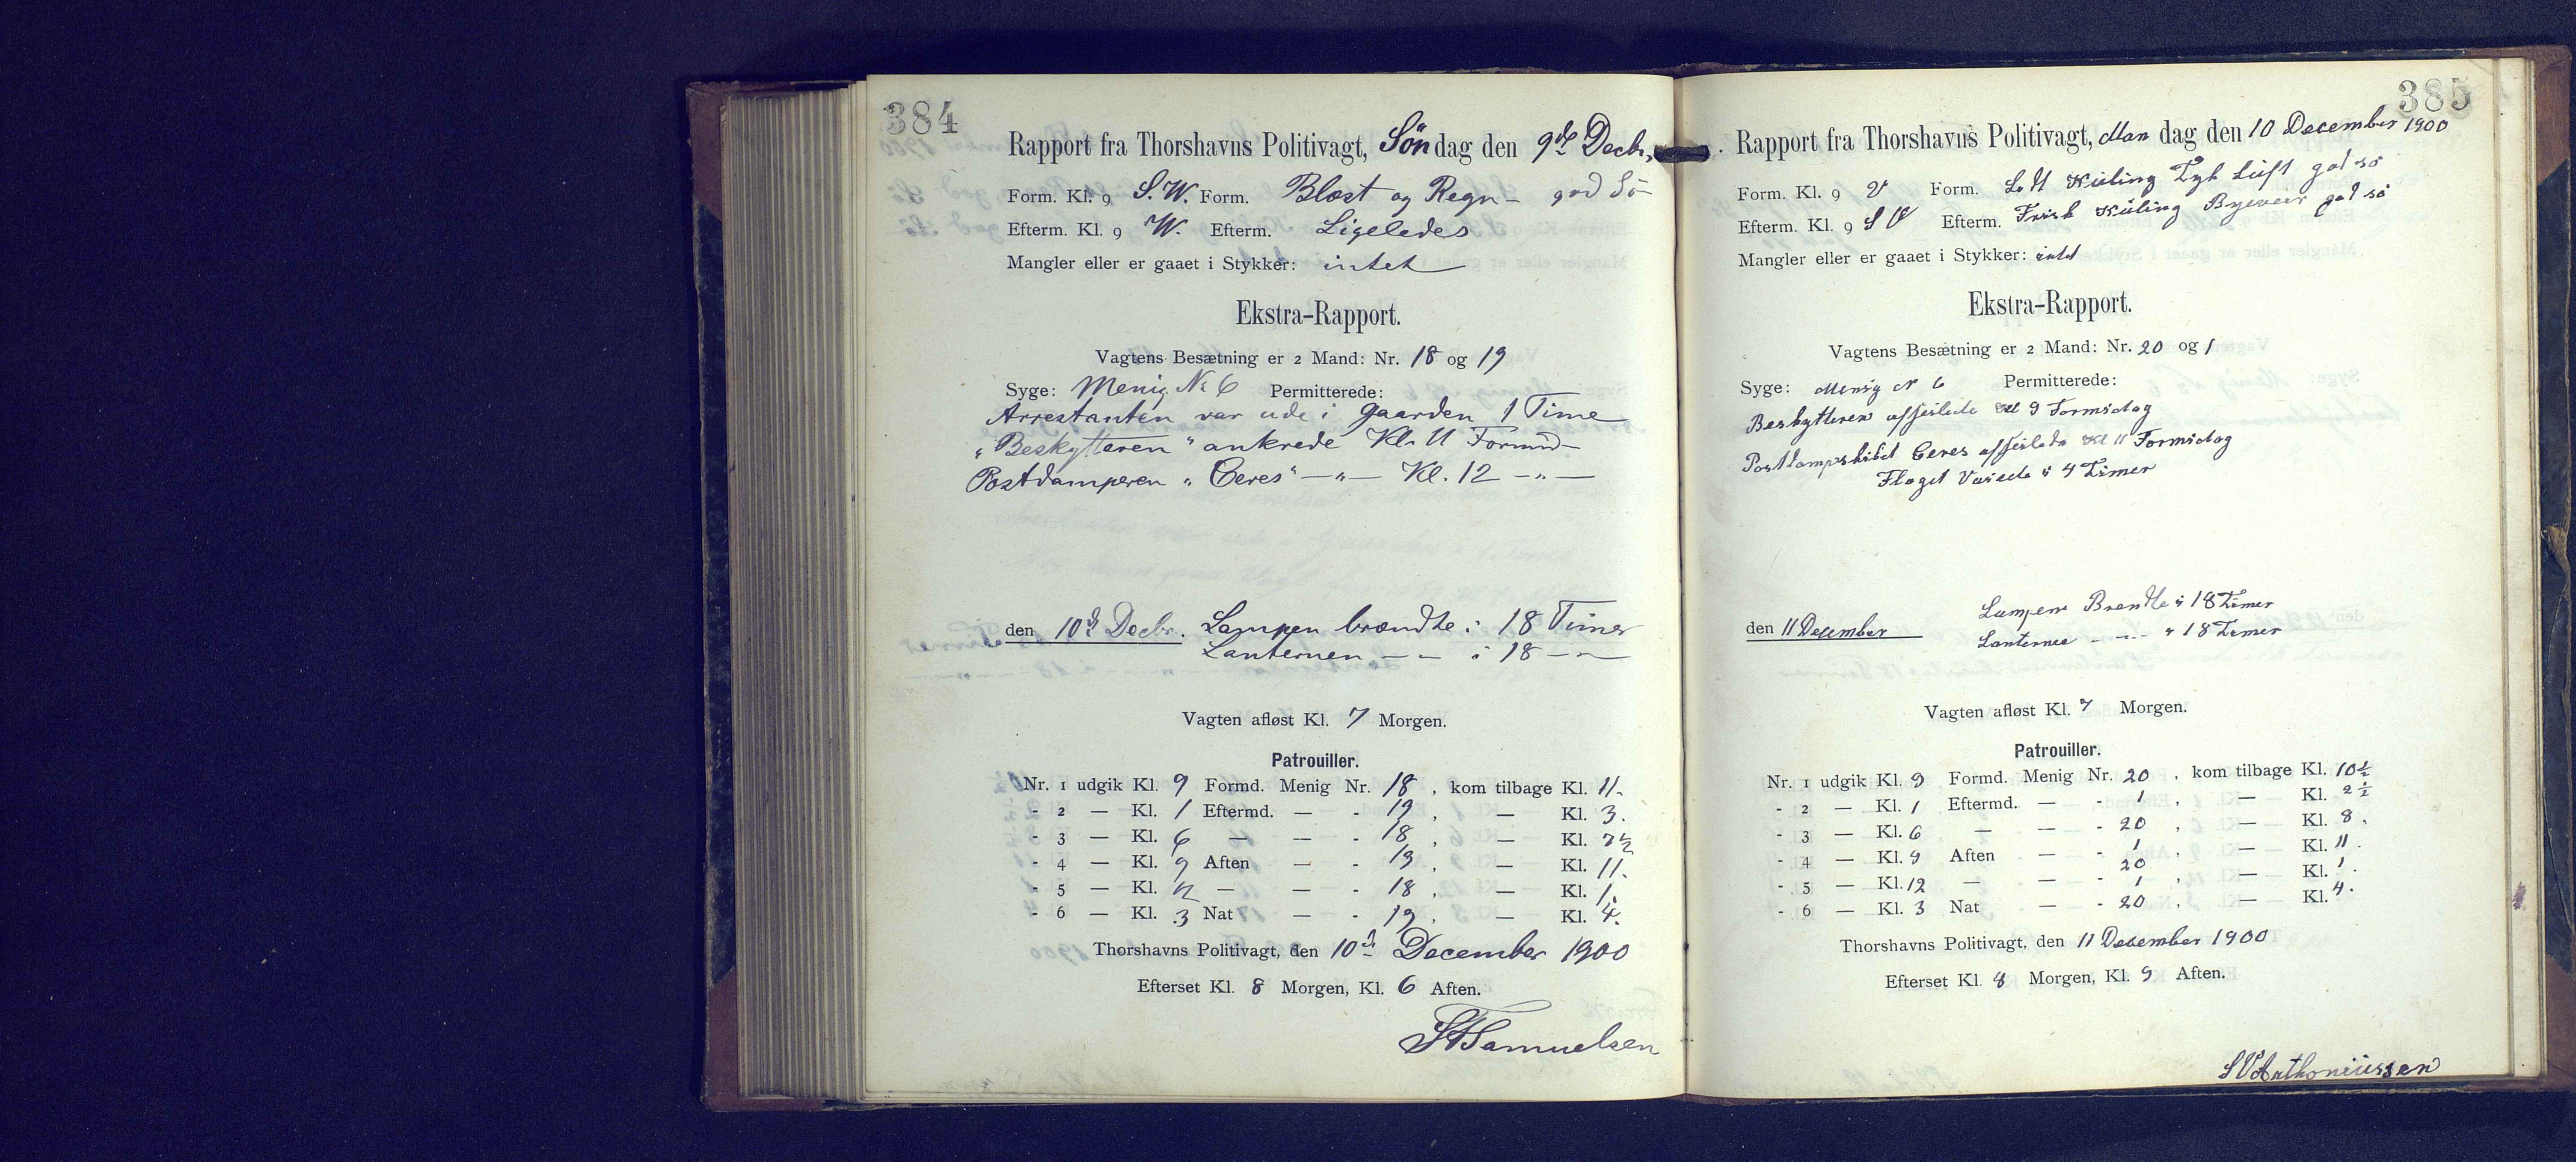 384
Rapport fra Thorshavns Politivagt, Søndag den 9de Decbr.
Form. Kl. 9 S.W. Form. Blæst og Regn - god Sø
Efterm. Kl. 9 W. Efterm. Ligeledes
Mangler eller er gaaet i Stykker: intet
Ekstra-Rapport.
Vagtens Besætning er 2 Mand: Nr. 18 og 19
Syge: Menig No 6 Permitterede:
Arrestanten var ude i Gaarden 1 Time
"Beskytteren" ankrede Kl. 11 Formd
Postdamperen "Ceres" —"— Kl. 12 —"—
den 10de Decbr. Lampen brændte i 18 Timer
Lanternen — — i 18 —"—
Vagten afløst Kl. 7 Morgen.
Patrouiller.
Nr. 1 udgik Kl. 9 Formd. Menig Nr. 18, kom tilbage Kl. 11.
- 2 — Kl. 1 Eftermd. — - 19, — Kl. 3.
- 3 — Kl. 6 — — - 18, — Kl. 7½
- 4 — Kl. 9 Aften — - 19, — Kl. 11.
- 5 — Kl. 12 — — - 18, — Kl. 1.
- 6 — Kl. 3 Nat — - 19, — Kl. 4.
Thorshavns Politivagt, den 10de December 1900
Efterset Kl. 8 Morgen, Kl. 6 Aften.
Samuelsen
385
Rapport fra Thorshavns Politivagt, Mandag den 10 December 1900
Form. Kl. 9 V Form. Let Kuling Tyk Luft god sø
Efterm. Kl. 9 S V Efterm. Frisk Kuling Byeveir god sø
Mangler eller er gaaet i Stykker: intet
Ekstra-Rapport.
Vagtens Besætning er 2 Mand: Nr. 20 og 1
Syge: Menig N 6 Permitterede:
Beskytteren afseilede Kl 9 Formidag
Postdampskibet Ceres afseilede Kl 11 Formidag
Flaget Vaiede i 4 Timer
den 11 December Lampen Brendte i 18 Timer
Lanternen - -- - " 18 Timer
Vagten afløst Kl. 7 Morgen.
Patrouiller.
Nr. 1 udgik Kl. 9 Formd. Menig Nr. 20, kom tilbage Kl. 10½
- 2 — Kl. 1 Eftermd. — - 1, — Kl. 2½
- 3 — Kl. 6 — — - 20, — Kl. 8.
- 4 — Kl. 9 Aften — - 1, — Kl. 11.
- 5 — Kl. 12 — — - 20 1, — Kl. 1.
- 6 — Kl. 3 Nat — - 20, — Kl. 4.
Thorshavns Politivagt, den 11 December 1900
Efterset Kl. 8 Morgen, Kl. 9 Aften.
S V Anthoniussen